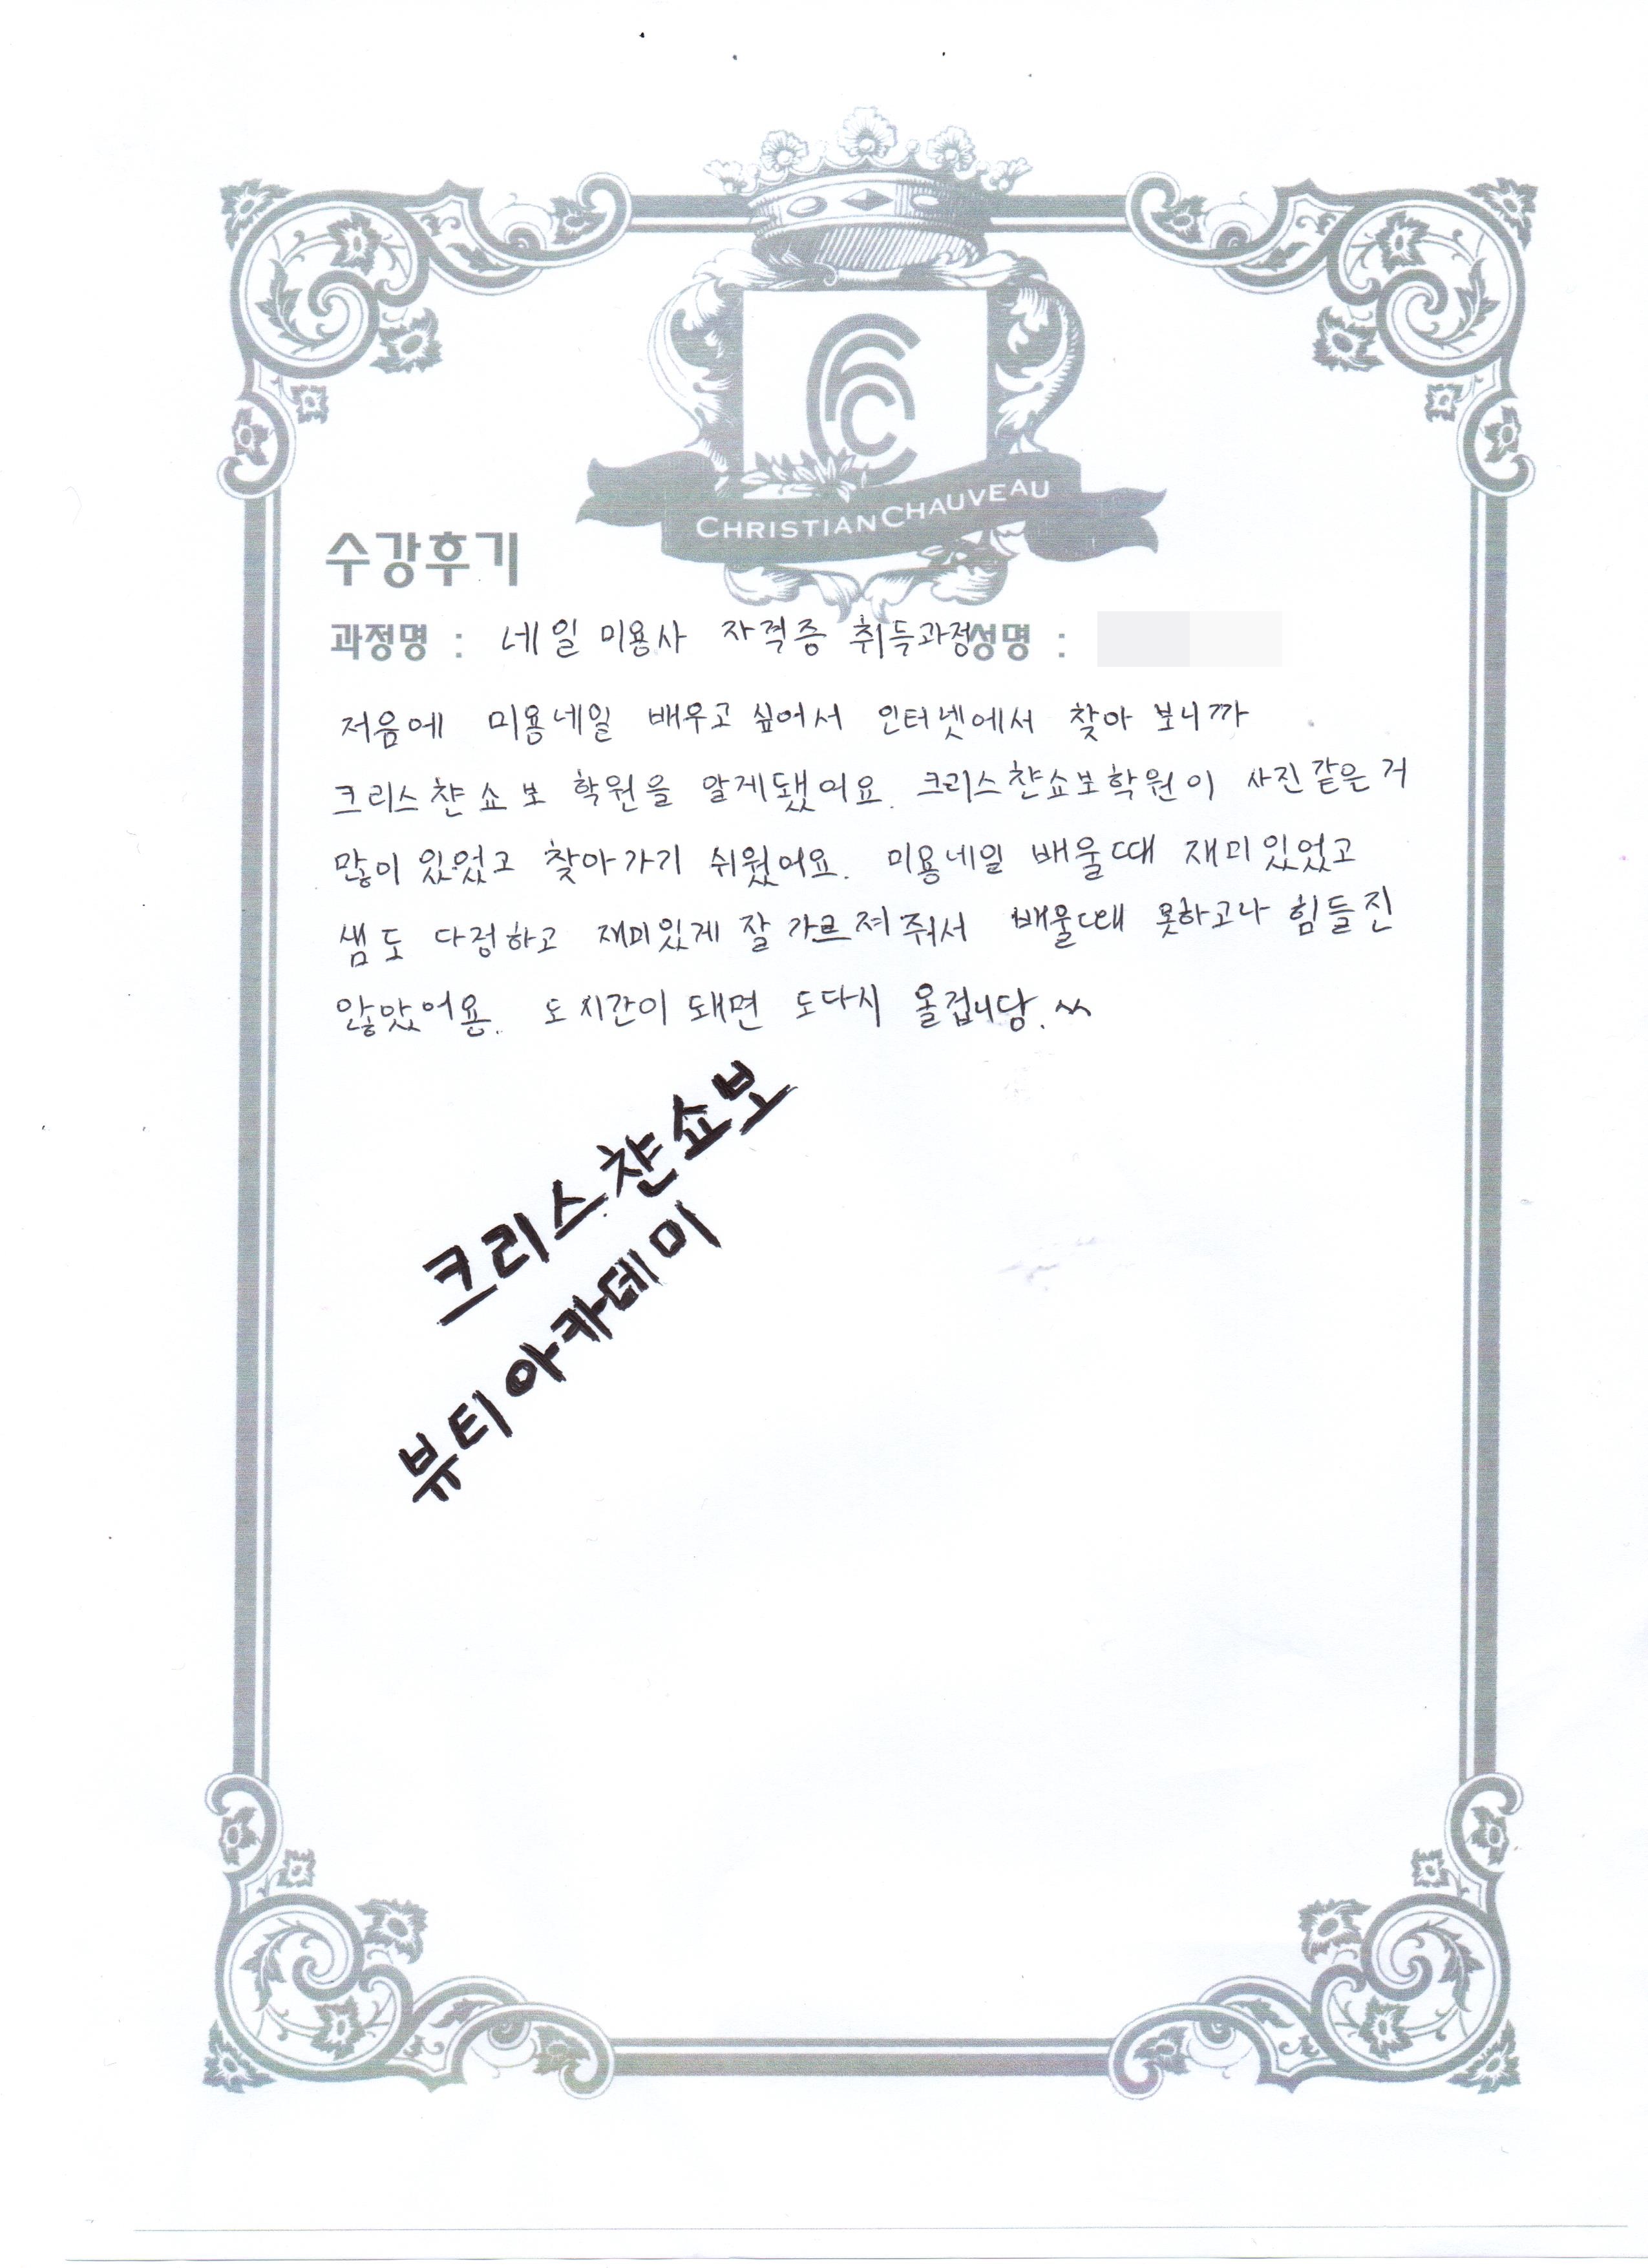 CHRISTIAN CHAUVEAU
수강후기
과정명 : 네일 미용사 자격증 취득과정 성명 :
저음에 미용네일 배우고 싶어서 인터넷에서 찾아 보니까
크리스챤쇼보 학원을 알게됐어요. 크리스챤쇼보학원이 사진같은 거
많이 있었고 찾아가기 쉬웠어요. 미용네일 배울때 재미있었고
샘도 다정하고 재미있게 잘 가르져줘서 배울때 못하고나 힘들진
않았어용. 도 시간이 돼면 도다시 올겁니당. ^^
크리스챤쇼보
뷰티아카데미